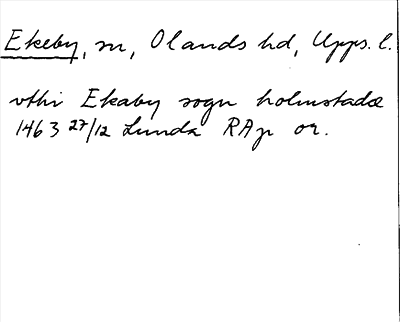 Ekeby, sn, Olands hd, Upps. l.
vthi Ekaby sogn holmstadæ
1463 27/12 Lunda RAp or.